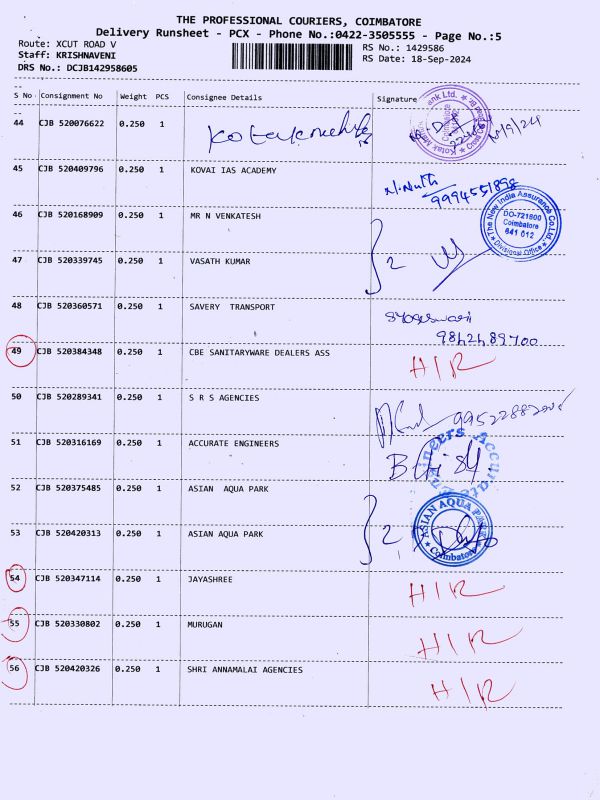 THE PROFESSIONAL COURIERS, COIMBATORE
Delivery Runsheet - PCX - Phone No.:0422-3505555 - Page No.:5
Route: XCUT ROAD V
RS No.: 1429586
Staff: KRISHNAVENI
RS Date: 18-Sep-2024
DRS No.: DCJB142958605
S No Consignment No Weight PCS Consignee Details Signature
44 CJB 520076622 0.250 1
45 CJB 520409796 0.250 1 KOVAI IAS ACADEMY
9994551898
46 CJB 520168909 0.250 1 MR N VENKATESH
The New India Assurance Co.Ltd
DO-721800
Coimbatore
641 012
Divisional Office
47 CJB 520339745 0.250 1 VASATH KUMAR 2
48 CJB 520360571 0.250 1 SAVERY TRANSPORT
9842489700
49 CJB 520384348 0.250 1 CBE SANITARYWARE DEALERS ASS H/R
50 CJB 520289341 0.250 1 S R S AGENCIES
51 CJB 520316169 0.250 1 ACCURATE ENGINEERS
52 CJB 520375485 0.250 1 ASIAN AQUA PARK
53 CJB 520420313 0.250 1 ASIAN AQUA PARK 2
ASIAN AQUA PARK
Coimbatore
54 CJB 520347114 0.250 1 JAYASHREE H/R
55 CJB 520330802 0.250 1 MURUGAN H/R
56 CJB 520420326 0.250 1 SHRI ANNAMALAI AGENCIES H/R